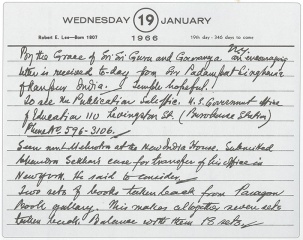 WEDNESDAY 19 JANUARY
Robert E. Lee—Born 1807 1966 19th day - 346 days to come
By the Grace of Sri Sri Guru and Gouranga an encouraging
letter is received to-day from Sir Padampat Singhania
of Kanpur India. I simple hopeful.
So see the Publication sale office. U.S. Government office
of Education 110 Livingston St (Brooklyn)
Phone 596-3106.
Seen at the New India House. Submitted
Sekhar's case for transfer of his office in
New York. He said to consider.
Two sets of books taken back from Paragon
Book gallery. This makes altogether seven sets
taken back. Balance with them 18 sets.